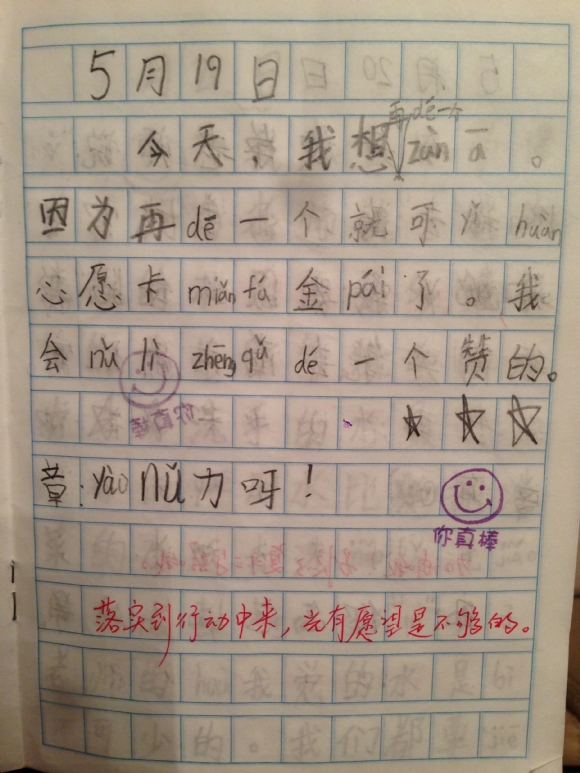 5月19日
今天,我想再dé一个zàn ā。
因为再dē一个就可yǐ huàn
心愿卡miǎn fá金pái了。我
会nǔ lì zhēng qǔ dé一个赞的。
你真棒
☆☆☆
章:yào nǔ力呀!
你真棒
落实到行动中来,光有愿望是不够的。